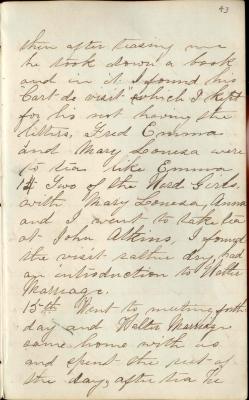 43
then after teasing me
he took down a book
and in it I found his
"Cart de visit" which I kept
for his not having the
letters, Fred Emma
and Mary Louesa were
to tea like Emma
14 Two of the Ward Girls
with Mary Louesa, Anna
and I went to take tea
at John Atkins, I found
the visit rather dry, had
an introduction to Walter
Marriage.
15th Went to meeting forth
day and Walter Marriage
came home with us
and spent the rest of
the day, after tea he